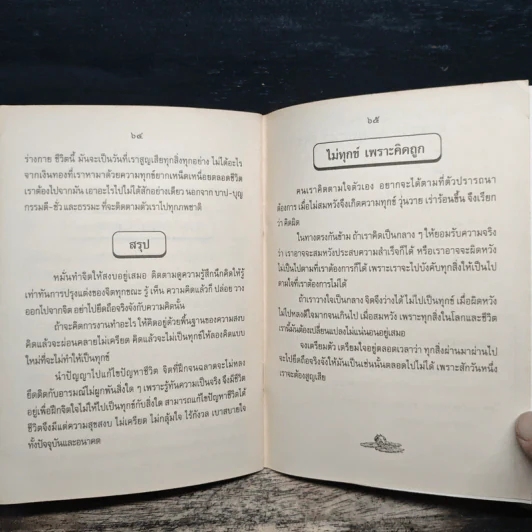 ๖๔
ร่างกาย ชีวิตนี้ มันจะเป็นวันที่เราสูญเสียทุกสิ่งทุกอย่าง ไม่ได้อะไร
จากเงินทองที่เราหามาด้วยความทุกข์ยากเหน็ดเหนื่อยตลอดชีวิต
เราต้องไปจากมัน เอาอะไรไปไม่ได้สักอย่างเดียว นอกจาก บาป-บุญ
กรรมดี-ชั่ว และธรรมะ ที่จะติดตามตัวเราไปทุกภพชาติ
สรุป
หมั่นทำจิตให้สงบอยู่เสมอ ติดตามดูความรู้สึกนึกคิดให้รู้
เท่าทันการปรุงแต่งของจิตทุกขณะ รู้ เห็น ความคิดแล้วก็ ปล่อย วาง
ออกไปจากจิต อย่าไปยึดถือจริงจังกับความคิดนั้น
ถ้าจะคิดการงานทำอะไร ให้คิดอยู่ด้วยพื้นฐานของความสงบ
คิดแล้วจะผ่อนคลายไม่เครียด คิดแล้วจะไม่เป็นทุกข์ให้ลองคิดแบบ
ใหม่ที่จะไม่ทำให้เป็นทุกข์
นำปัญญาไปแก้ไขปัญหาชีวิต จิตที่ฝึกจนฉลาดจะไม่หลง
ยึดติดกับอารมณ์ไม่ผูกพันสิ่งใด ๆ เพราะรู้ทันความเป็นจริง จึงมีชีวิต
อยู่เพื่อฝึกจิตใจไม่ให้ไปเป็นทุกข์กับสิ่งใด สามารถแก้ไขปัญหาชีวิตได้
ชีวิตจึงมีแต่ความสุขสงบ ไม่เครียด ไม่กลุ้มใจ ไร้กังวล เบาสบายใจ
ทั้งปัจจุบันและอนาคต
๖๕
ไม่ทุกข์ เพราะคิดถูก
คนเราคิดตามใจตัวเอง อยากจะได้ตามที่ตัวปรารถนา
ต้องการ เมื่อไม่สมหวังจึงเกิดความทุกข์ วุ่นวาย เร่าร้อนขึ้น จึงเรียก
ว่า คิดผิด
ในทางตรงกันข้าม ถ้าเราคิดเป็นกลาง ๆ ให้ยอมรับความจริง
ว่า เราอาจจะสมหวังประสบความสำเร็จก็ได้ หรือเราอาจจะผิดหวัง
ไม่เป็นไปตามที่เราต้องการก็ได้ เพราะเราจะไปบังคับทุกสิ่งให้เป็นไป
ตามที่เราต้องการไม่ได้
ถ้าเราวางใจเป็นกลาง จิตจึงว่างได้ ไม่ไปเป็นทุกข์ เมื่อผิดหวัง
ไม่ไปหลงดีใจมากจนเกินไป เมื่อสมหวัง เพราะทุกสิ่งในโลกและชีวิต
เรานี้มันต้องเปลี่ยนแปลงไม่แน่นอนอยู่เสมอ
จงเตรียมตัว เตรียมใจอยู่ตลอดเวลาว่า ทุกสิ่งผ่านมาผ่านไป
จะไปยึดถือจริงจังให้มันเป็นเช่นนั้นตลอดไปไม่ได้ เพราะสักวันหนึ่ง
เราจะต้องสูญเสีย